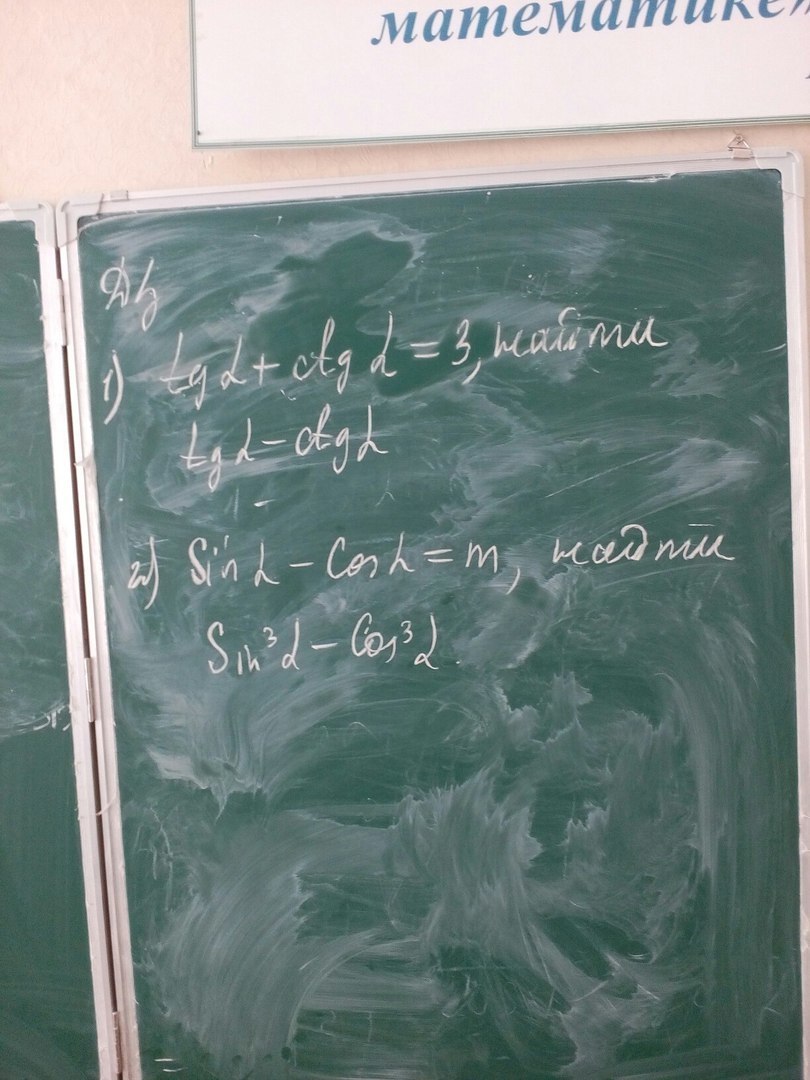 математике»
Дз
1) tg α + ctg α = 3, найти
tg α - ctg α
2) Sin α - Cos α = m, найти
Sin³ α - Cos³ α.